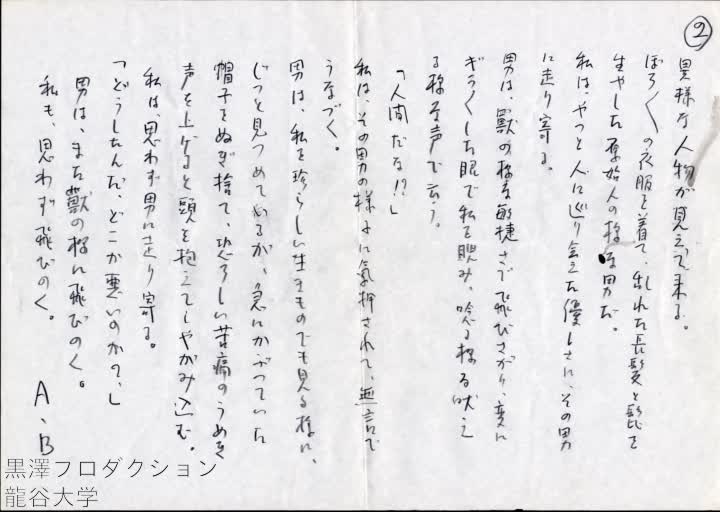 ②
異様な人物が見えて来る。
ぼろ〱の衣服を着て、乱れた長髪と髭を
生やした原始人の様な男だ。
私は、やつと人に巡り会えた優しさに、その男
に走り寄る。
男は、獸の様な敏捷さで飛びさがり、変に
ギラ〱した眼で私を睨み、唸る様な吠え
る様な声で云う。
「人間だな!?」
私は、その男の様子に氣押されて、無言で
うなづく。
男は、私を珍らしい生きものでも見る様に、
じつと見つめているが、急にかぶつていた
帽子をぬぎ捨て、恐ろしい苦痛のうめき
声を上げると頭を抱えてしやがみ込む。
私は、思わず男に走り寄る。
「どうしたんだ、どこか悪いのか?」
男は、また獸の様に飛びのく。
私も、思わず飛びのく。
A、B
黒澤プロダクション
龍谷大学